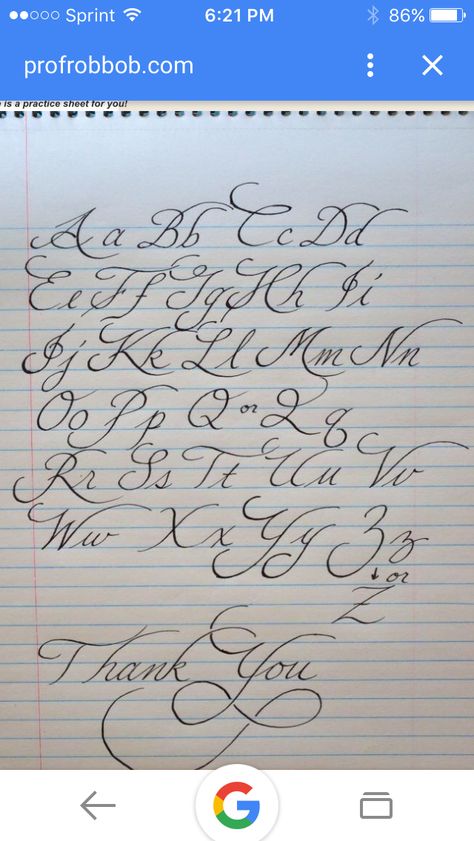 Sprint 6:21 PM 86%
profrobbob.com
is a practice sheet for you!
A a B b C c D d
E e F f G g H h I i
J j K k L l M m N n
O o P p Q or Q q
R r S s T t U u V v
W w X x Y y Z z
or
Z
Thank You
G